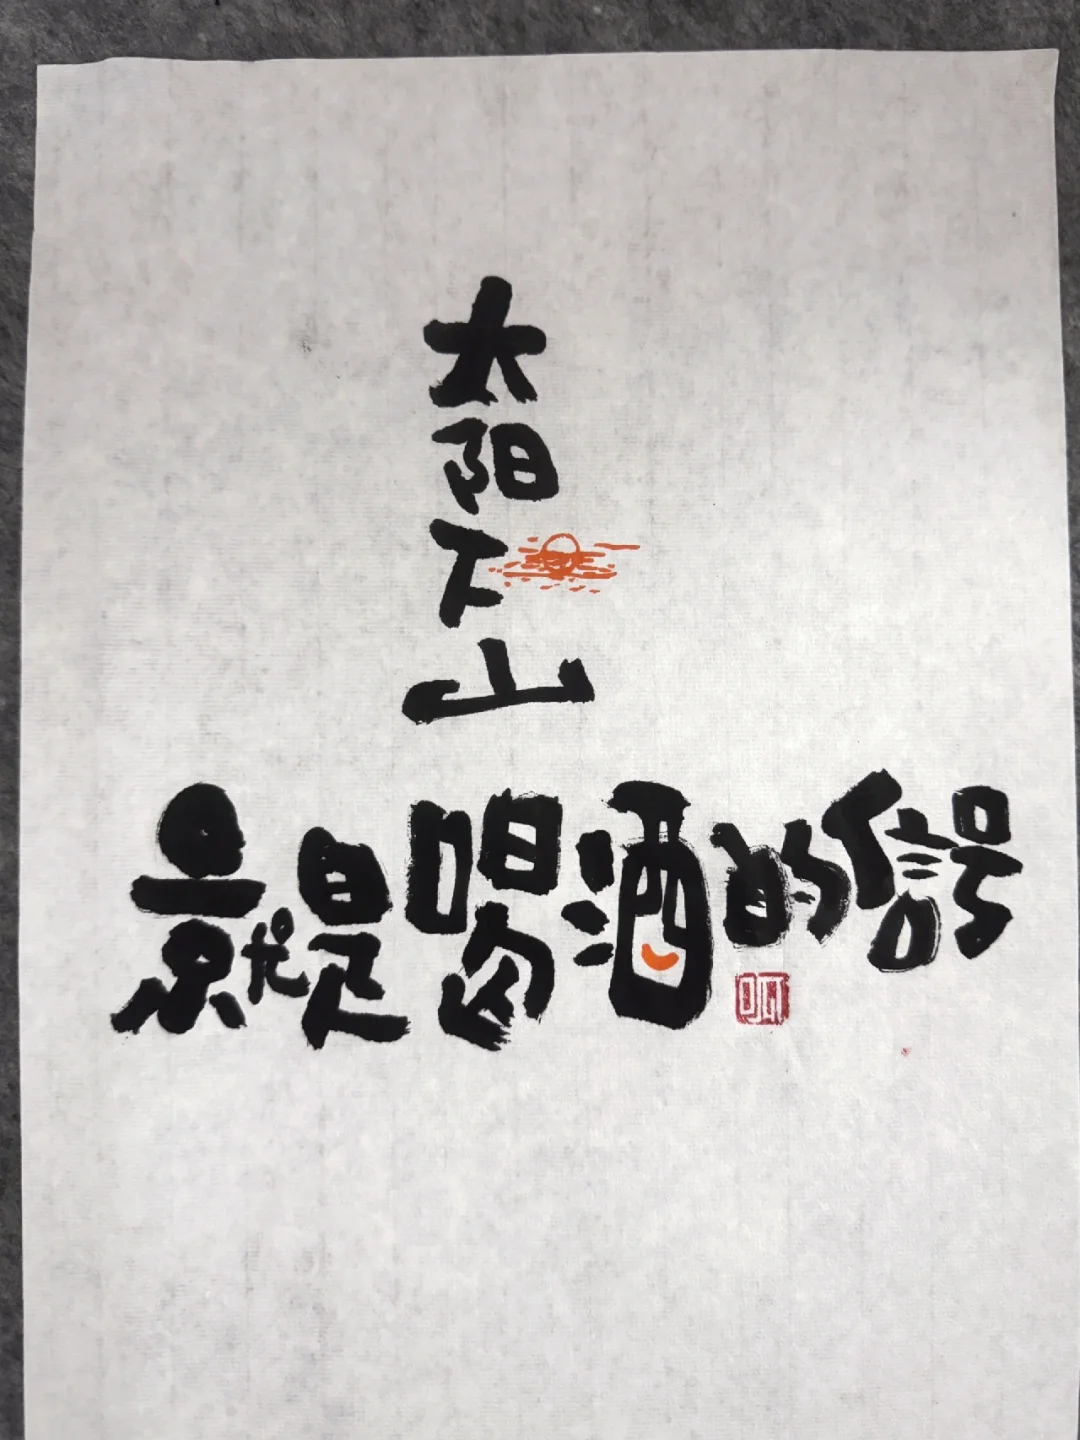 太阳下山
就是喝酒的信号